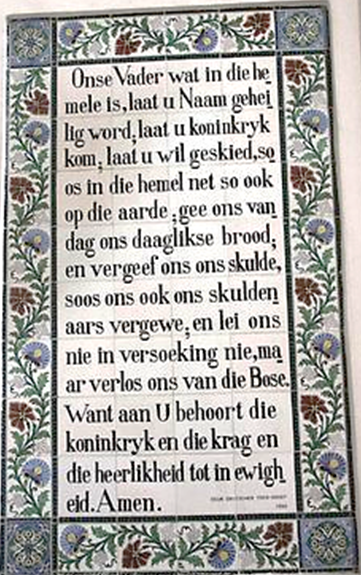 Onse Vader wat in die he
mele is, laat u Naam gehei
lig word, laat u koninkryk
kom, laat u wil geskied, so
os in die hemel net so ook
op die aarde; gee ons van
dag ons daaglikse brood;
en vergeef ons ons skulde,
soos ons ook ons skulden
aars vergewe; en lei ons
nie in versoeking nie, ma
ar verlos ons van die Bose.
Want aan U behoort die
koninkryk en die krag en
die heerlikheid tot in ewigh
eid. Amen.